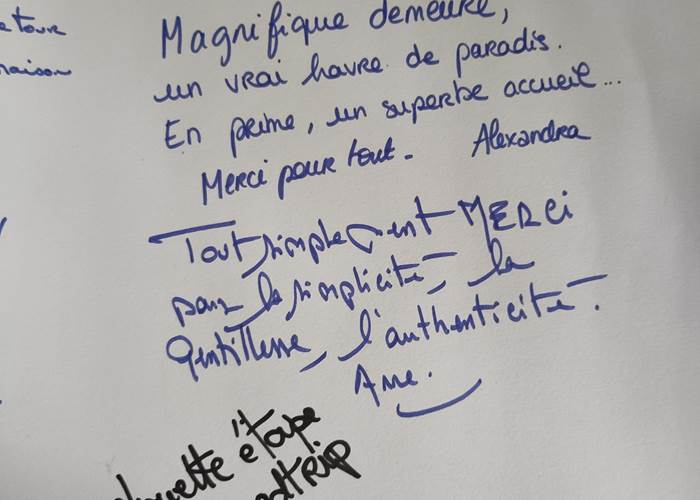 e tour
maison
Magnifique demeure,
un vrai havre de paradis.
En prime, un superbe accueil...
Merci pour tout. Alexandra
Tout simplement MERCi
pour la simplicité, la
gentillesse, l'authenticité.
Anne.
étape